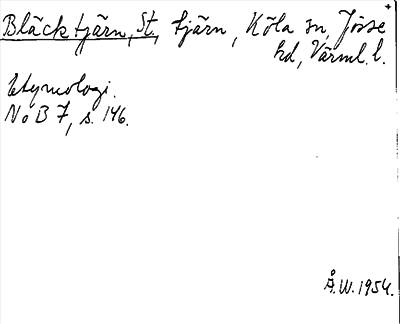 Bläcktjärn, St., tjärn, Köla sn, Jösse
hd, Värml. l.
Etymologi.
NoB 7, s. 146.
Å.W. 1954.